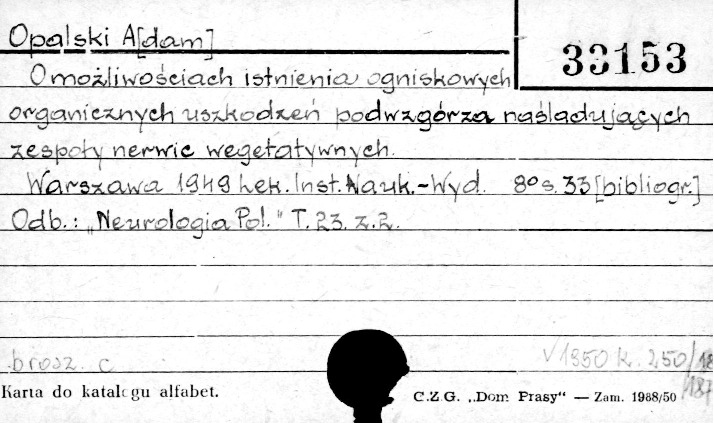 Opalski A[dam]
33153
O możliwościach istnienia ogniskowych
organicznych uszkodzeń podwzgórza naśladujących
zespoły nerwic wegetatywnych.
Warszawa 1949 Lek. Inst. Nauk.-Wyd. 8º s. 33 [bibliogr.]
Odb.: „Neurologia Pol." T. 23. z. 2.
brosz. c
V 1950 K. 250/18
/187
Karta do katalogu alfabet.
C.Z.G. „Dom Prasy" — Zam. 1988/50